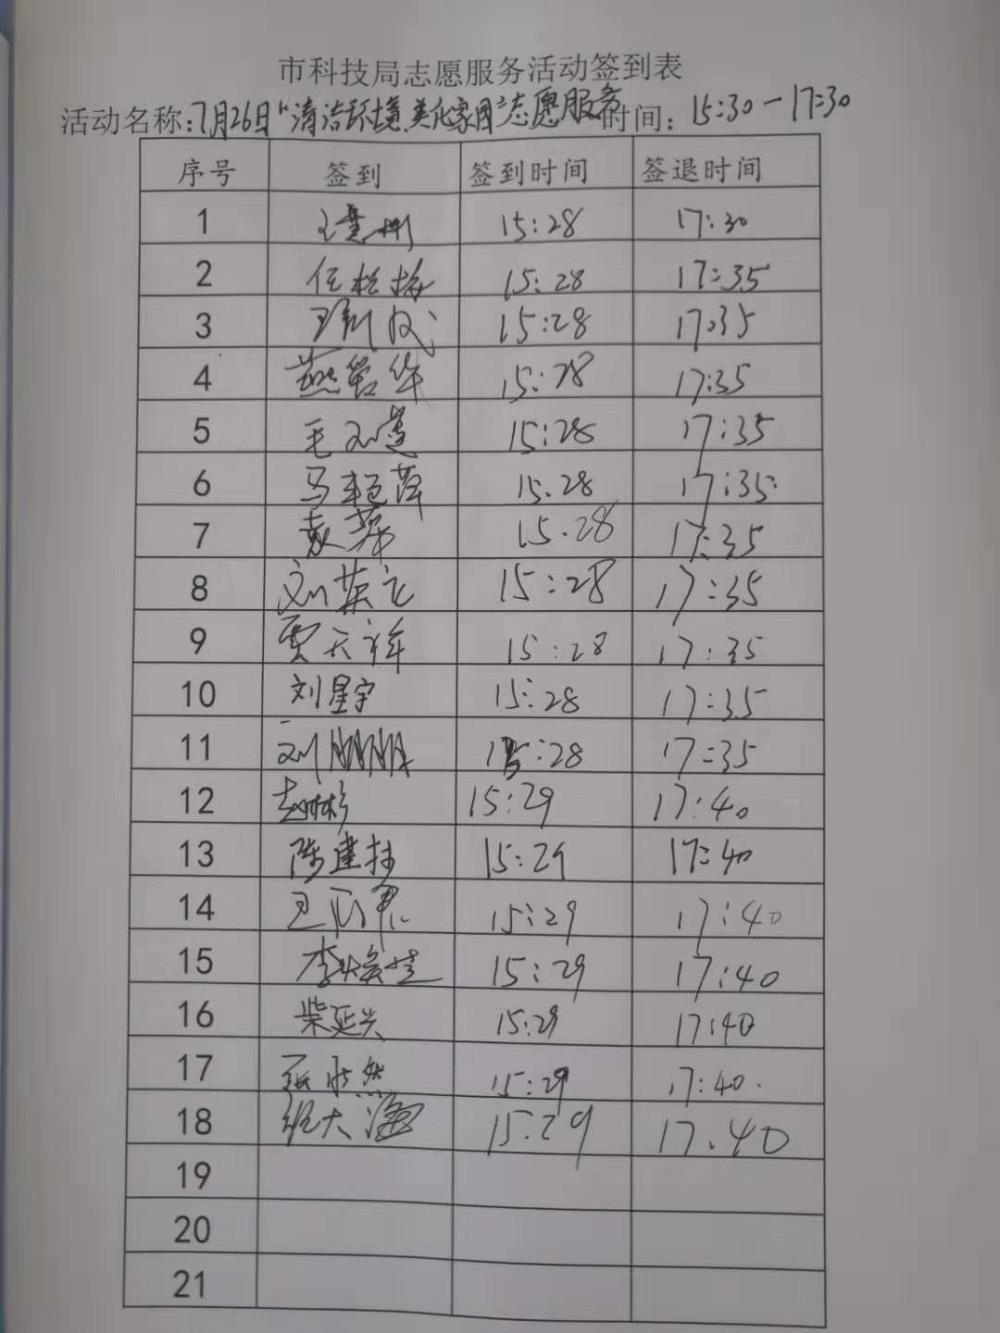 市科技局志愿服务活动签到表
活动名称:7月26日“清洁环境、美化家园”志愿服务时间: 15:30—17:30
序号 签到 签到时间 签退时间
1 15:28 17:30
2 任 梅 15:28 17:35
3 王 成 15:28 17:35
4 燕 华 15:28 17:35
5 毛 15:28 17:35
6 马艳萍 15:28 17:35
7 袁萍 15:28 17:35
8 刘英飞 15:28 17:35
9 贾天祥 15:28 17:35
10 刘星宇 15:28 17:35
11 刘朋朋 15:28 17:35
12 赵彬彬 15:29 17:40
13 陈建 15:29 17:40
14 王 15:29 17:40
15 李焕 15:29 17:40
16 柴延兴 15:29 17:40
17 张 然 15:29 17:40
18 张大海 15:29 17:40
19
20
21